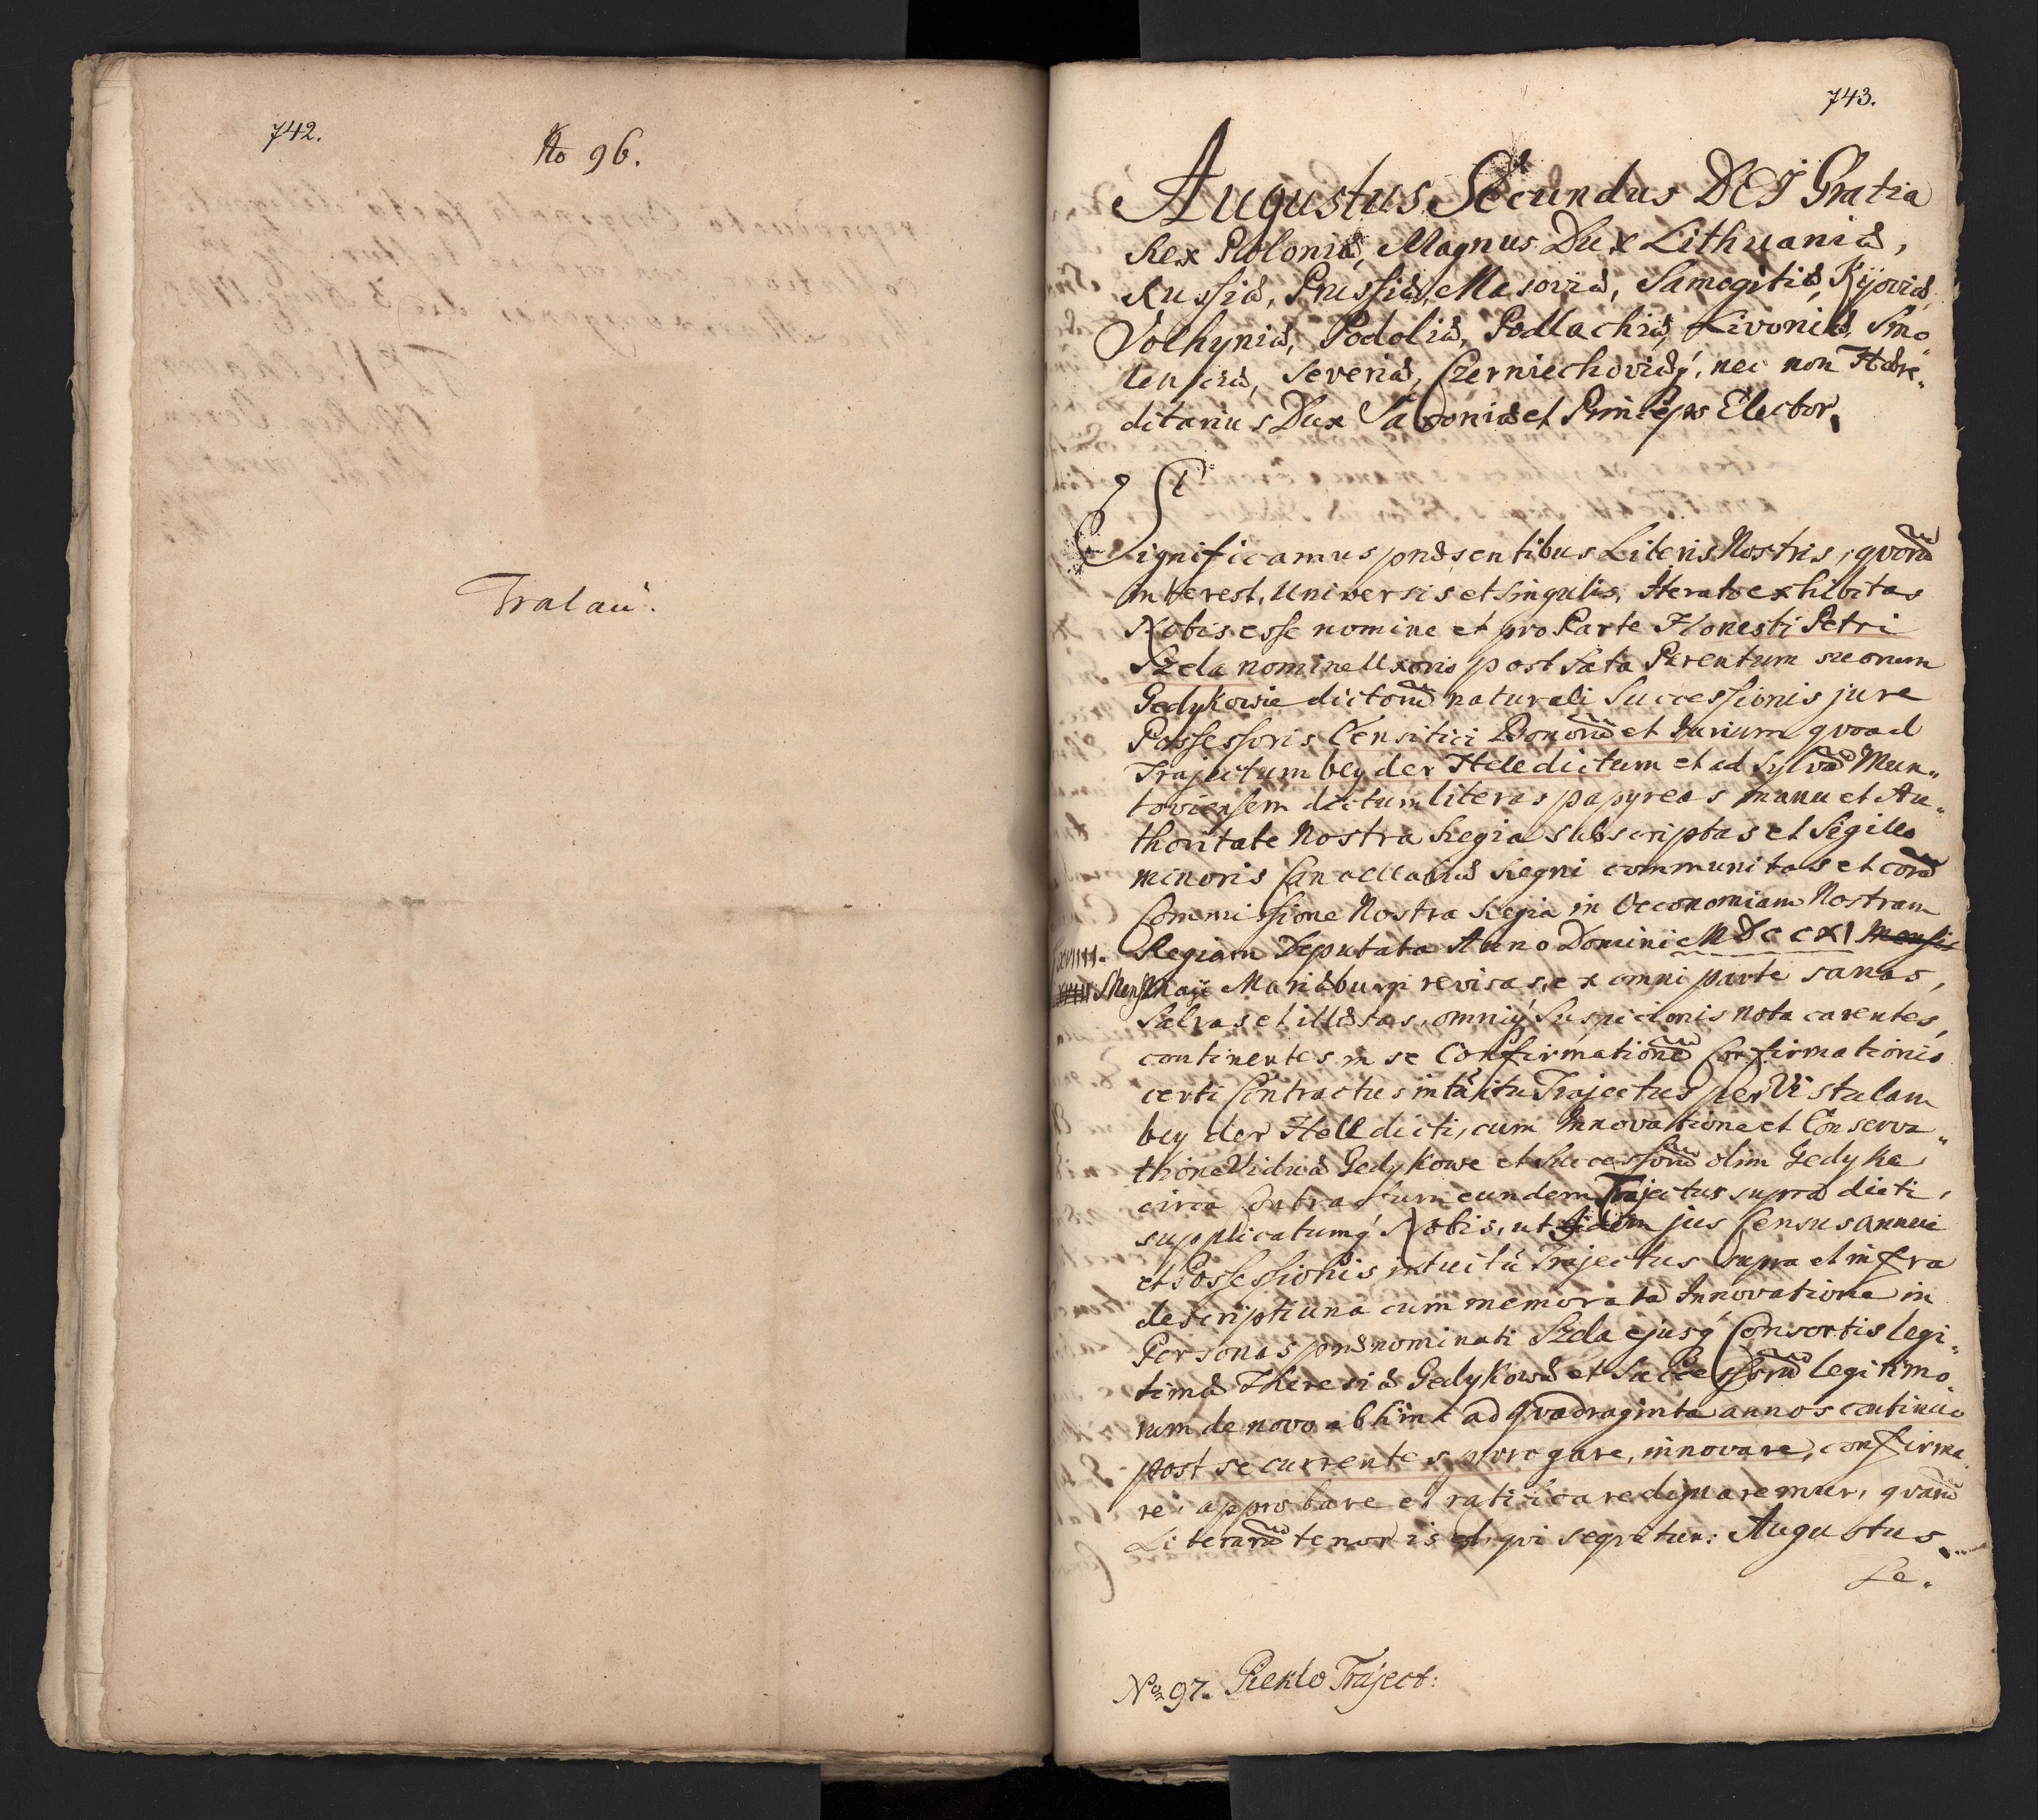 742.
No 96.
Tralau.
743.
Augustus Secundus DEI Gratia
Rex Poloniæ, Magnus Dux Lithuaniæ,
Russiæ, Prussiæ, Masoviæ, Samogitiæ, Kijoviæ,
Volhyniæ, Podoliæ, Podlachiæ, Livoniæ, Smo„
lensciæ, Severiæ, Czerniechoviæq́, nec non Hære„
ditarius Dux Saxoniæ et Princeps Elector.
Significamus præsentibus Literis Nostris, qvorũ
interest, Universis et Singulis, Iterato exhibitas
Nobis esse nomine et pro Parte Honesti Petri
Szela nomine Uxoris post Fata Parentum suorum
Gedykowie dictorũ naturali Successionis jure
Possessoris Censitici Bonorũ et Iurium qvoad
Trajectum bey der Helle dictum et ad Sylvã Mun„
toviensem dictum literas papyreas manu et Au„
thoritate Nostra Regia subscriptas et Sigillo
minoris Cancellariæ Regni communitas et corã
Commissione Nostra Regia in Oeconomiam Nostram
Regiam Deputata Anno Domini MDCCXI Mensis
XVIII. Mens Maji Mariæburgi revisas, ex omni parte sanas,
Salvas et illæsas, omniq́ Suspicionis nota carentes,
continentes in se Confirmationẽ Confirmationis
certi Contractus intuitu Trajectus per Vistulam
bey der Hell dicti, cum Innovatione et Conserva„
thione Viduæ Gedykowe et Successorũ olim Gedyka
circa Contractum eundem Trajectus supra dicti,
supplicatumq́ Nobis, ut eidem jus Census annui
et Possessionis intuitu Trajectus supra et infra
descripti una cum memorata Innovatione in
Personas prænominati Szela ejusq́ Consortis legi„
timæ Theresiæ Gedykowæ et Successorũ legitimo„
rum de novo abhinc ad qvadraginta annos continuo
post se currentes prorogare, innovare, confirma„
re, approbare et ratificare dignaremur, qvarũ
Literarũ tenor is est qvi seqvitur: Augustus
Se„
No 97. Pieklo Traject: